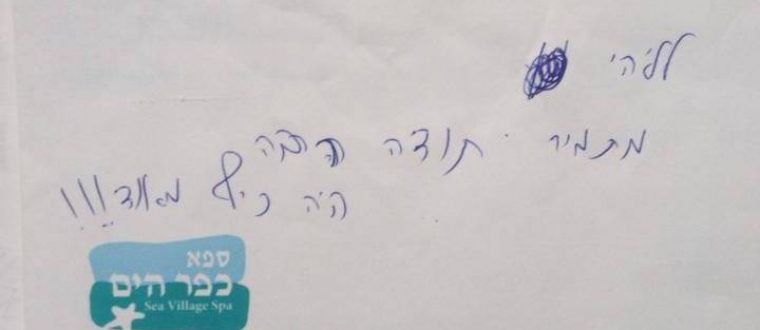 ללהי
מתמיר. תודה רבה
היה כיף מאוד!!!
ספא
כפר הים
Sea Village Spa